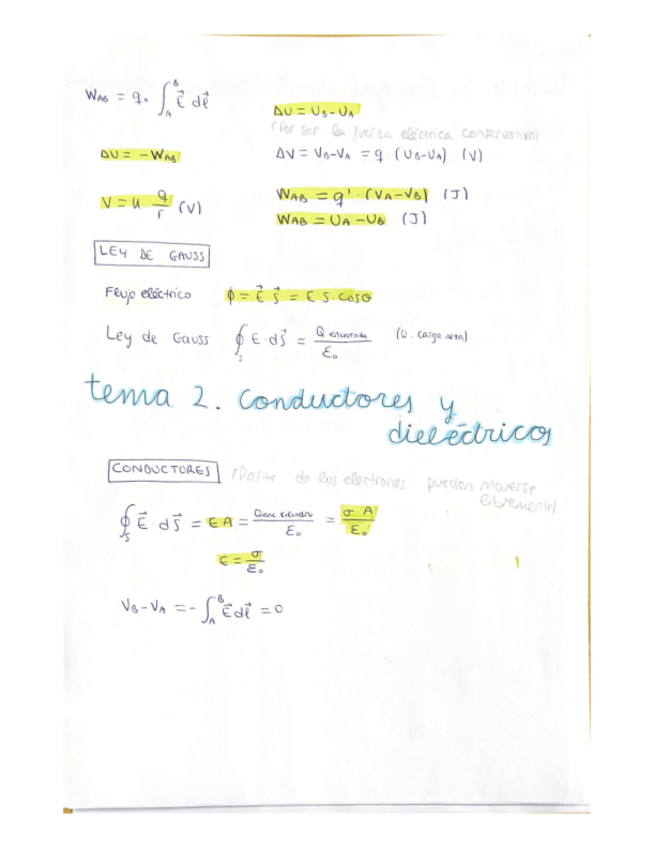 W_AB = q₀ ∫_A^B E⃗ dℓ⃗
ΔU = U_B - U_A
(Por ser la fuerza eléctrica conservativa)
ΔU = - W_AB
ΔV = V_B - V_A = q · (U_B - U_A) (V)
V = k · q/r (V)
W_AB = q' · (V_A - V_B) (J)
W_AB = U_A - U_B (J)
LEY DE GAUSS
Flujo eléctrico ϕ = E⃗ · S⃗ = E S · cosθ
Ley de Gauss ∮_S E · dS⃗ = Q encerrada / ε₀ (Q: carga neta)
tema 2. Conductores y
dieléctricos
CONDUCTORES (Parte de los electrones pueden moverse
libremente)
∮_S E⃗ · dS⃗ = E A = Q enc cilindro / ε₀ = σ A / ε₀
E = σ / ε₀
V_B - V_A = - ∫_A^B E⃗ dℓ⃗ = 0